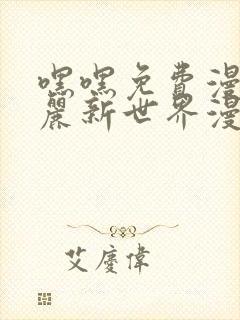 嘿嘿免費漫
麗新世界漫
艾慶偉